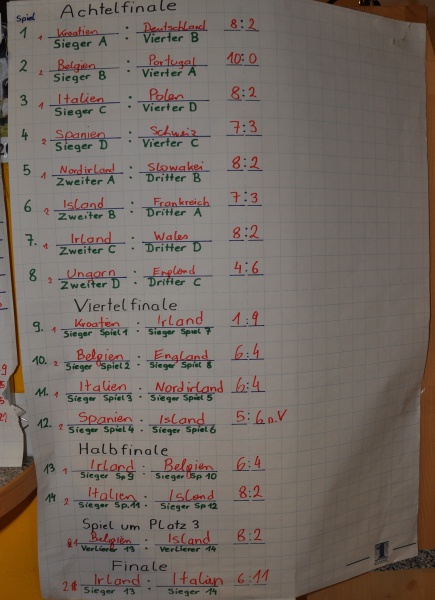 Achtelfinale
Spiel
1 1 Kroatien : Deutschland 8:2
Sieger A Vierter B
2 2 Belgien : Portugal 10:0
Sieger B Vierter A
3 1 Italien : Polen 8:2
Sieger C Vierter D
4 2 Spanien : Schweiz 7:3
Sieger D Vierter C
5 1 Nordirland : Slowakei 8:2
Zweiter A Dritter B
6 2 Island : Frankreich 7:3
Zweiter B Dritter A
7. 1 Irland : Wales 8:2
Zweiter C Dritter D
8 2 Ungarn : England 4:6
Zweiter D Dritter C
Viertelfinale
9. 1 Kroatien : Irland 1:9
Sieger Spiel 1 Sieger Spiel 7
10. 2 Belgien : England 6:4
Sieger Spiel 2 Sieger Spiel 8
11. 1 Italien : Nordirland 6:4
Sieger Spiel 3 Sieger Spiel 5
12. 2 Spanien : Island 5:6 n.V
Sieger Spiel 4 Sieger Spiel 6
Halbfinale
13 1 Irland : Belgien 6:4
Sieger Sp 9 Sieger Sp 10
14 2 Italien : Island 8:2
Sieger Sp.11 Sieger Sp 12
Spiel um Platz 3
1 Belgien : Island 8:2
Verlierer 13 Verlierer 14
Finale
2 Irland : Italien 6:11
Sieger 13 Sieger 14
1